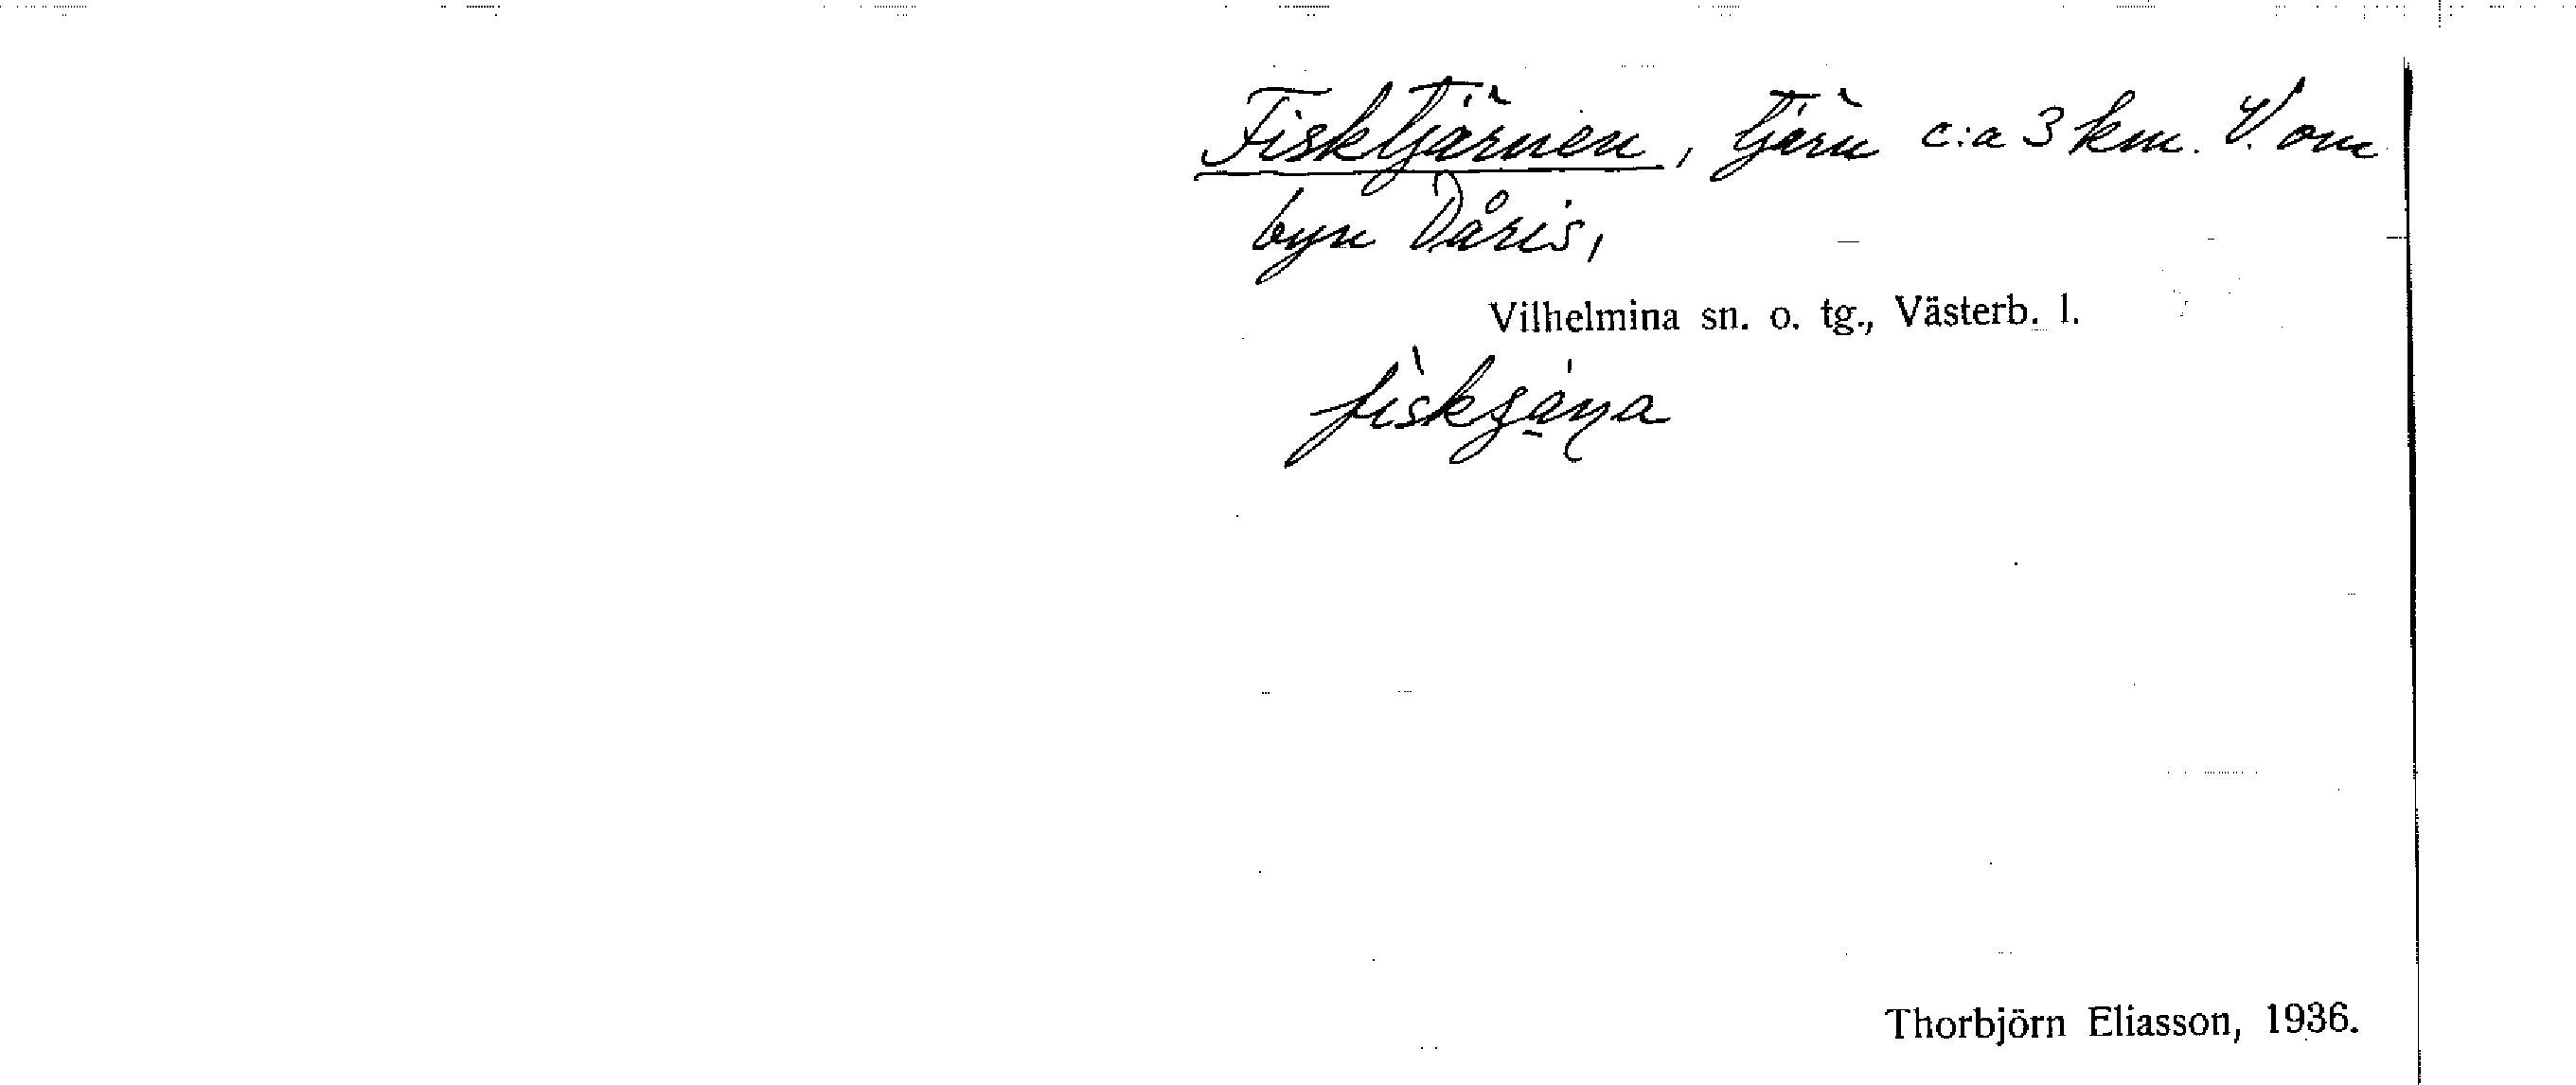 Fisktjärnen, tjärn c:a 3 km. V. om
byn Dåris,
Vilhelmina sn. o. tg., Västerb. l.
Thorbjörn Eliasson, 1936.